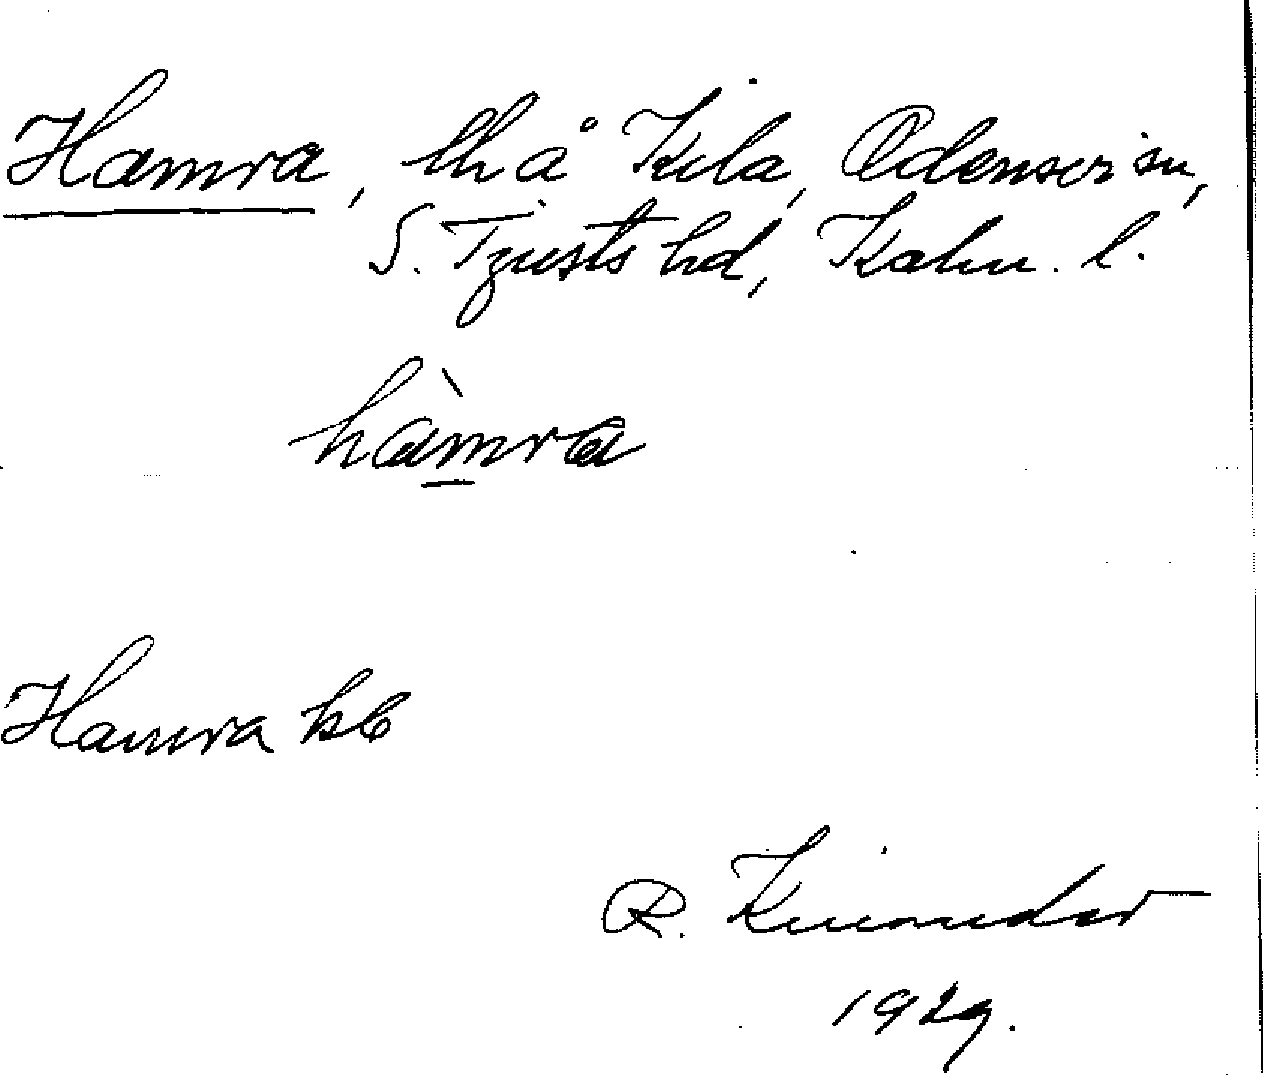 Hamra, lh å Kila, Odensvi sn,
S. Tjusts hd, Kalm. l.
hàmra
Hamra kb
R. Kinander
1929.